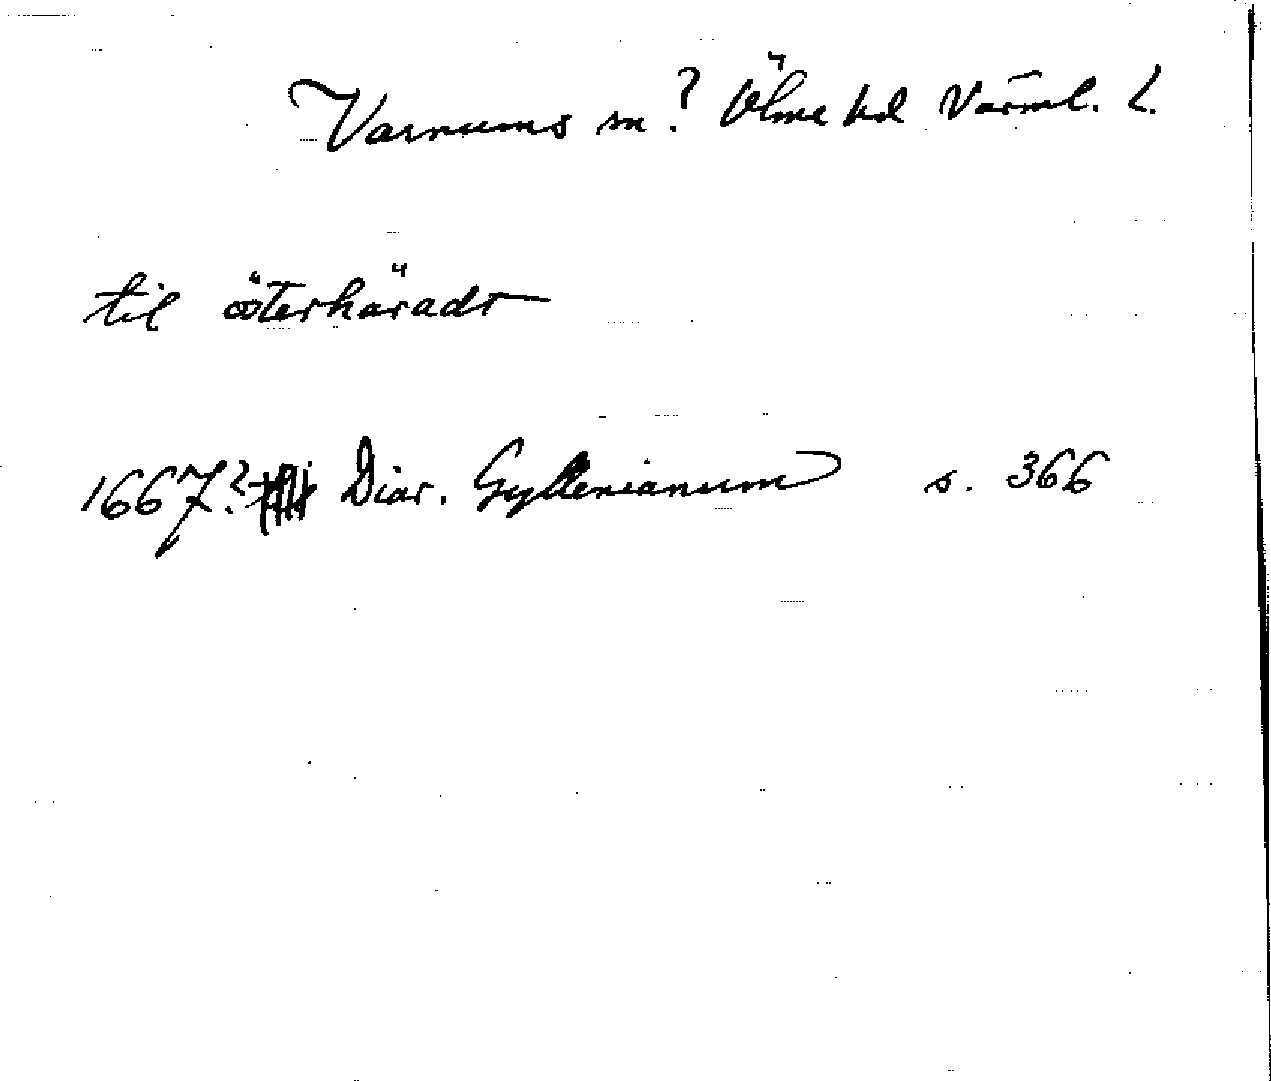 Varnums sn? Ölme hd Värml. l.
til österhäradt
1667? Diar. Gyllenianum s. 366